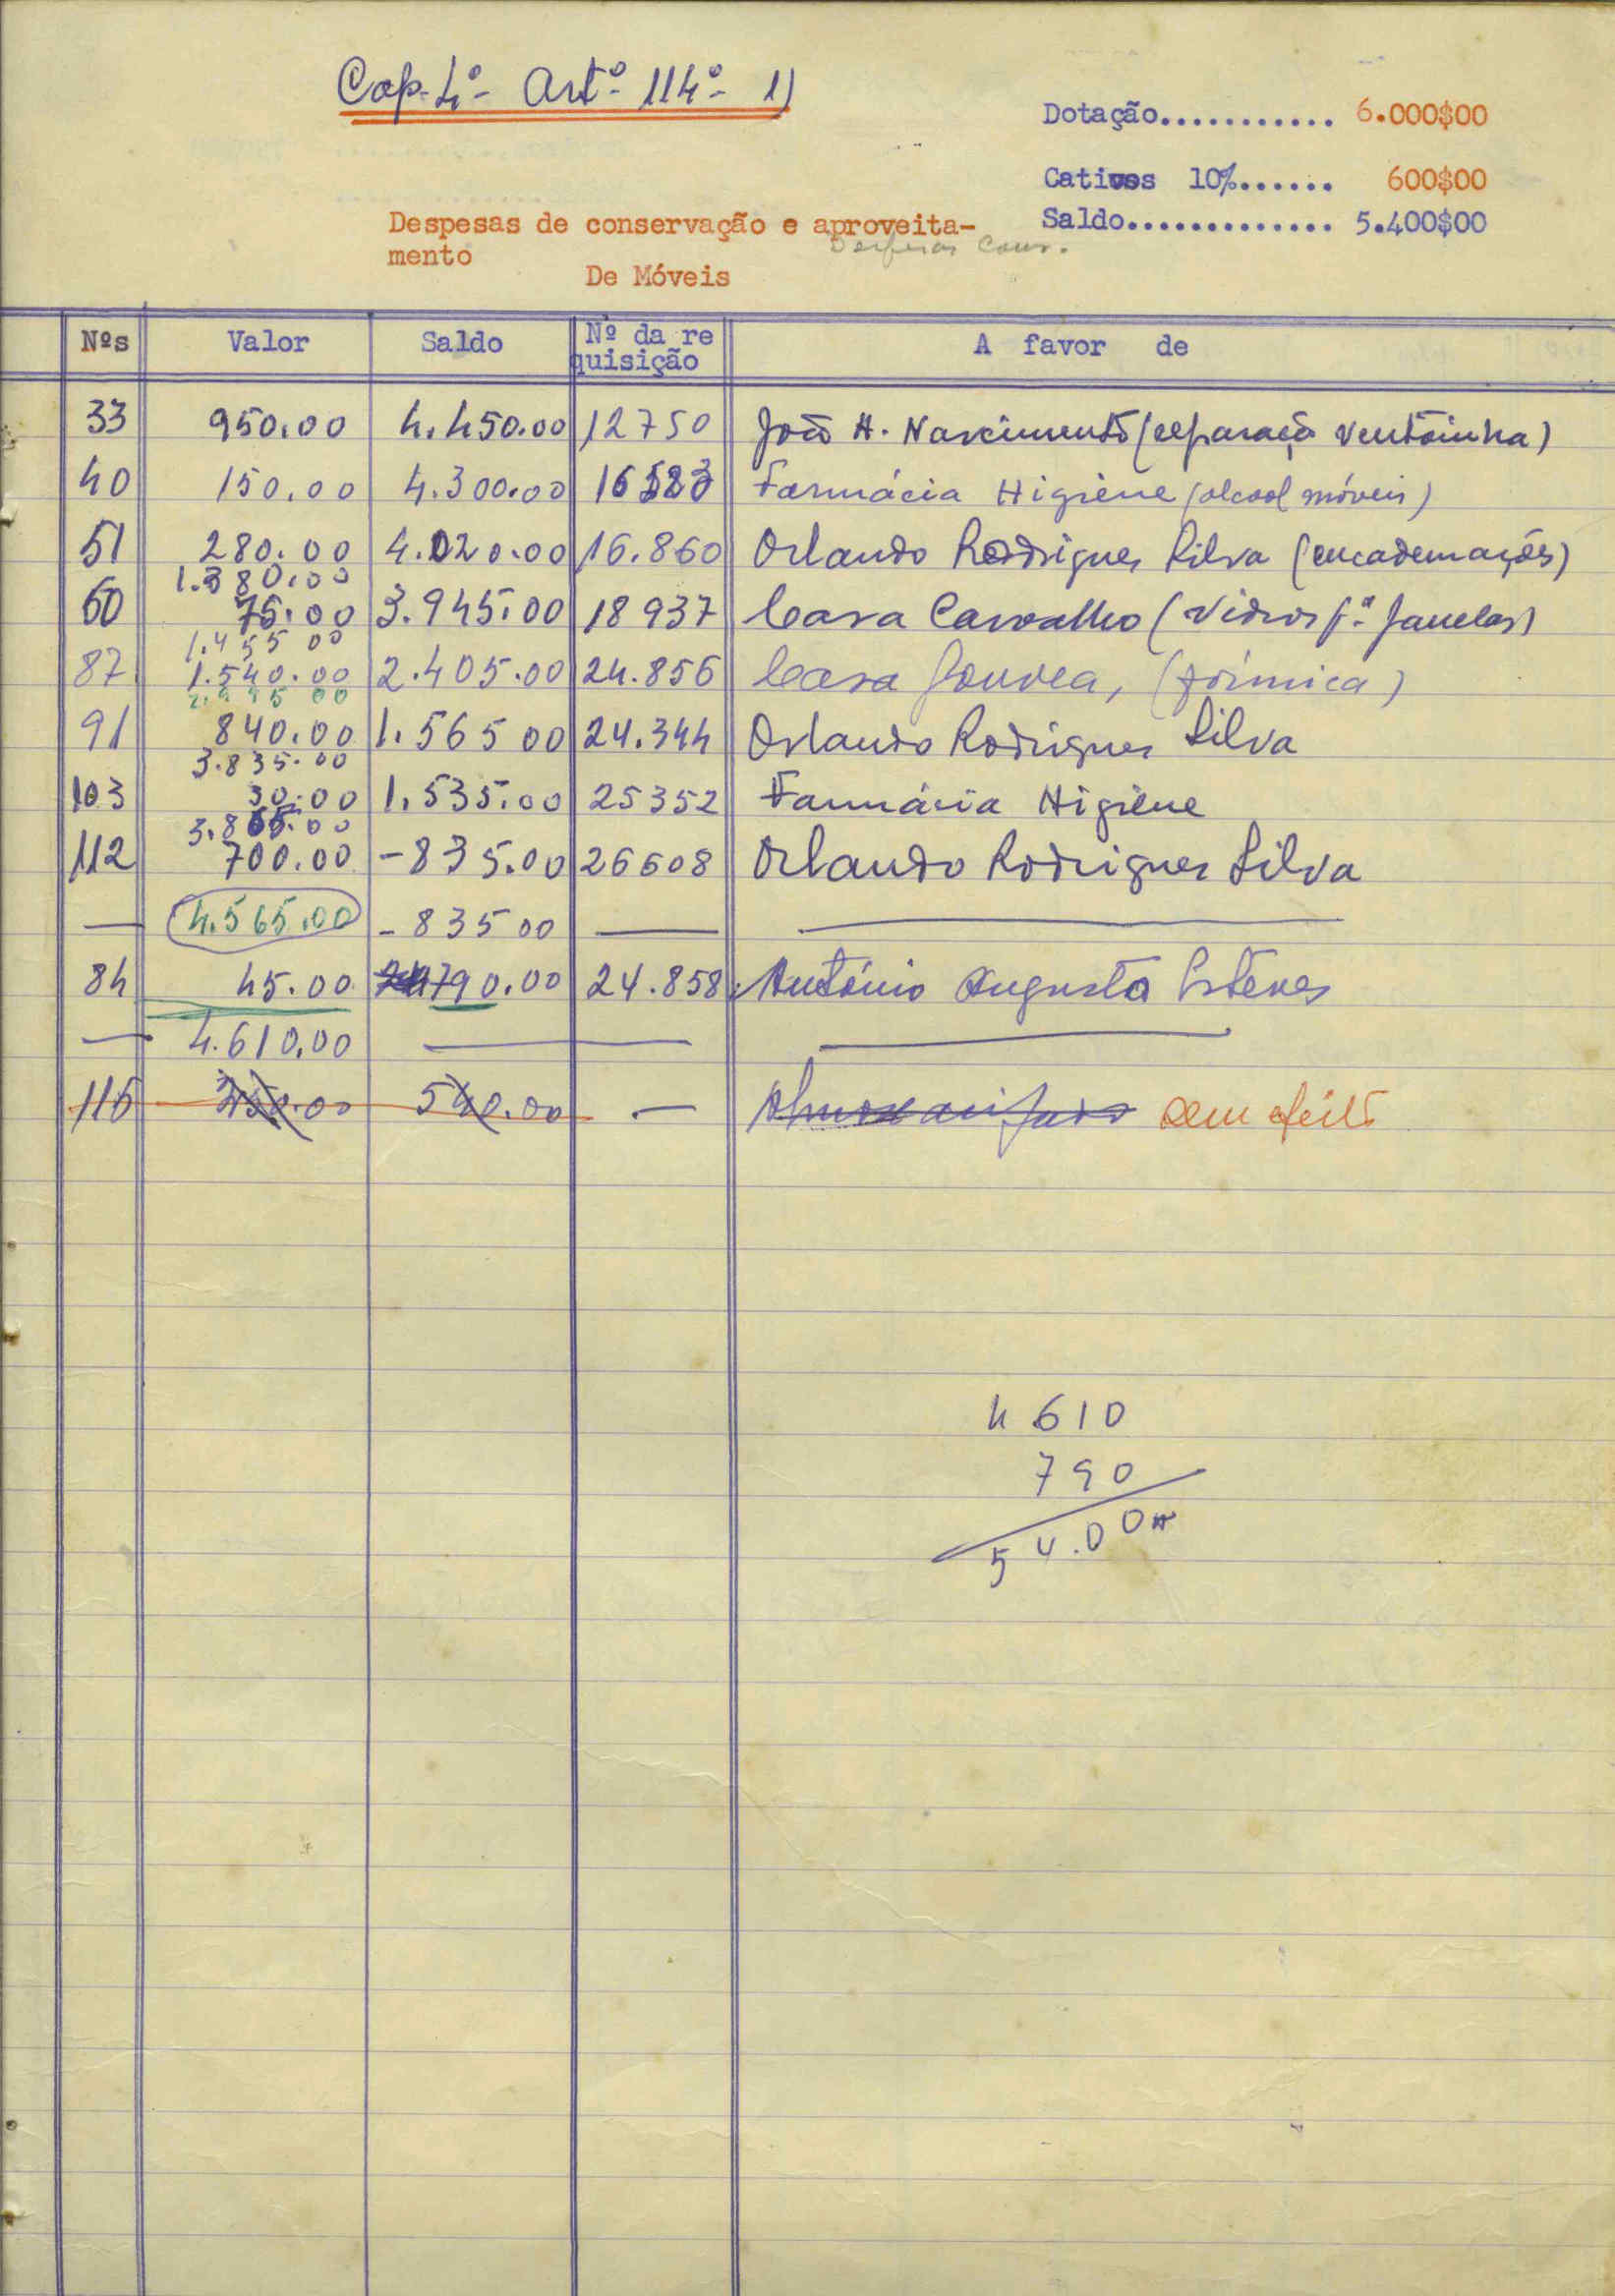 Cap. 4º - Artº - 114º - 1)
Dotação........... 6.000$00
Cativos 10%...... 600$00
Saldo............. 5.400$00
Despesas de conservação e aproveita-
mento
Despesas Cons.
De Móveis
Nºs Valor Saldo Nº da re A favor de
quisição
33 950.00 4.450.00 12750 João H. Nascimento (reparação ventoinha)
40 150.00 4.300.00 16583 Farmácia Higiene (alcool móveis)
51 280.00 4.020.00 16.860 Orlando Rodrigues Silva (encadernações)
1.380.00
60 75.00 3.945.00 18937 Casa Carvalho (Vidros p.ª Janelas)
1.455 00
87 1.540.00 2.405.00 24.856 Casa Gouvea, (fórmica)
2.995 00
91 840.00 1.565 00 24.344 Orlando Rodrigues Silva
3.835.00
103 30.00 1.535.00 25352 Farmácia Higiene
3.865.00
112 700.00 - 835.00 26608 Orlando Rodrigues Silva
— 4.565.00 - 835 00 —
84 45.00 790.00 24.858 António Augusto Esteves
— 4.610.00 —
116 540.00 — Almoxarifado sem efeito
4 610
790
5 4.00